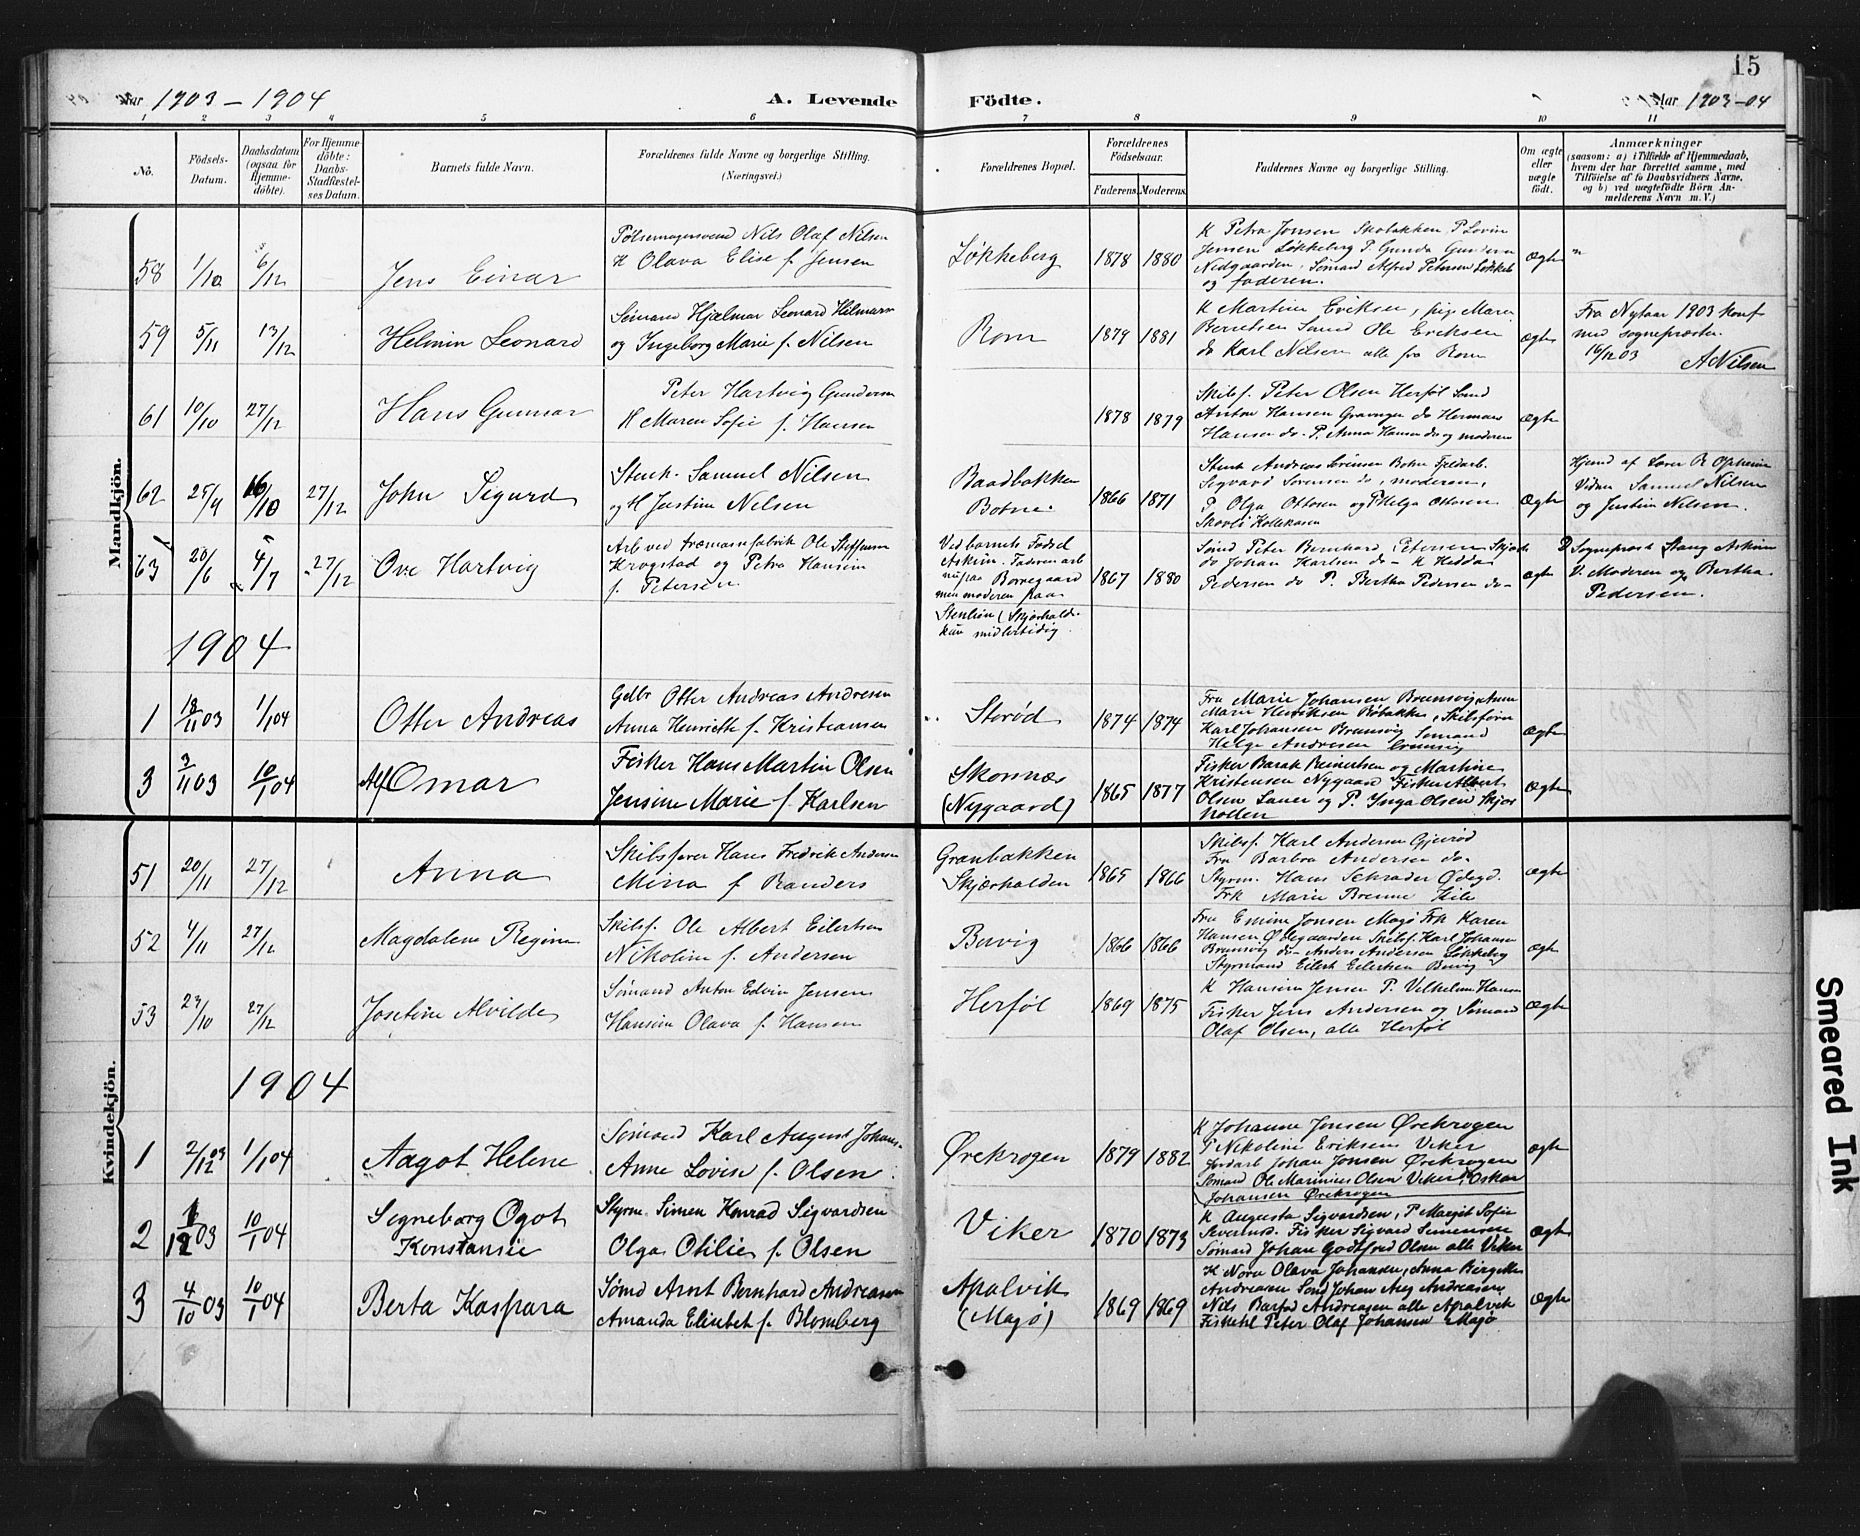 15
Aar 1903-1904 A. Levende Födte. Aar 1903-04
1 2 3 4 5 6 7 8 9 10 11
No.
Födsels-
Datum.
Daabsdatum
(ogsaa for
Hjemme-
döbte).
For Hjemme-
döbte:
Daabs-
Stadfæstel-
ses Datum.
Barnets fulde Navn.
Forældrenes fulde Navne og borgerlige Stilling.
(Næringsvei.)
Forældrenes Bopæl.
Forældrenes
Födselsaar.
Faderens. Moderens.
Faddernes Navne og borgerlige Stilling.
Om ægte
eller
uægte
födt.
Anmærkninger
(saasom: a) i Tilfælde af Hjemmedaab,
hvem der har forrettet samme, med
Tilföielse af to Daabsvidners Navne,
og b) ved uægtefödte Börn An-
melderens Navn m. V.)
Mandkjön.
58 1/10 6/12 Jens Einar
Pølsemagersvend Nils Olaf Nilsen
H Olava Elise f. Jensen
Løkkeberg 1878 1880
K Petra Jensen Skolbakken P Lovin
Jensen Løkkeberg P. Gunda Gundersen
Nedgaarden. Sømand Alfred Petersen Løkkeb
og faderen.
Ægte "
59 5/11 13/12 Helmin Leonard
Sømand Hjælmar Leonard Hilmarsen
og Ingeborg Marie f. Nilsen
Rom 1879 1881
K Martine Eriksen, pige Maren
Berntsen Sømd Ole Eriksen
do Karl Nilsen alle fra Rom
Ægte
Fra Nytaar 1903 konf
med sogneprästen
16/12 03
A Nilsen
61 10/10 27/12 Hans Gunnar
Peter Hartvig Gundersen
H Maren Sofie f. Hansen
1878 1879
Skibsf. Peter Olsen Herføl Sømd
Anton Hansen do Herman
Hansen do. P. Anna Hansen do og moderen
Ægte
62 25/9 16/10 27/12 John Sigurd
Stenh. Samuel Nilsen
og H Justine Nilsen
Baadbakken
Botne. 1866 1871
Stenh Andreas Sørensen Botne
Sigvard Sørensen do, moderen,
P Olga Ottosen og P Helga Ottosen
Ægte
Hjemd af Lærer R Opheim
Vidner Samuel Nilsen
og Justine Nilsen.
63 20/6 4/7 27/12 Ove Hartvig
Arb ved træmassefabrik Ole Steffensen
Krogstad og Petra Hansine
f. Petersen
Ved barnets Födsel
Askim. Faderen arb
nu paa Borregaard
men moderen paa
Stenlien (Skjærhalde
kun midlertidig.
1867 1880
Sömd Peter Bernhard Petersen Skjærh
do Johan Karlsen do - K Hedda
Pedersen do P. Bertha Pedersen do -
Ægte
D Sogneprest Stang Askim
V. Moderen og Bertha
Pedersen.
1904
1 18/11 03 1/1 04 Otter Andreas
Gdbr Otter Andreas Andresen
Anna Henriette f. Kristiansen
Storød 1874 1874
Fru Marie Johansen Brunsvig Anne
Marie Henriksen Røbakken, Skibsfører
Karl Johansen Brunsvig Sømand
Helge Andresen Brunsvig
Ægte
3 3/11 03 10/1 04 Alf Omar
Fisker Hans Martin Olsen
Jensine Marie f. Karlsen
Skonnæs
(Nygaard) 1865 1877
Fisker Barak Reinertsen og Martine
Kristensen Nygaard Fisker Albert
Olsen Lauer og P. Inga Olsen Skjær
hollen
Ægte
Kvindekjön.
51 20/11 27/12 Anna
Skibsfører Hans Fredrik Andersen
Mina f Randers
Grønbakken
Skjærhalden 1865 1866
Skibsf. Karl Andersen Gjeirød
Fru Barbra Andersen do.
Styrm. Hans Schrader Ødegd.
Frk Marie Brenne Kile
Ægte
52 4/11 27/12 Magdalene Regine
Skibsf. Ole Albert Eilertsen
Nikoline f. Andersen
Buvig 1866 1866
Fru Emine Jensen Magø Frk Karen
Hansen Ødegaarden Skibsf. Karl Johansen
Brunsvig do - Anders Andersen Løkkeberg
Styrmand Eilert Eilertsen Buvig
Ægte
53 23/10 27/12 Josefine Alvilde
Sømand Anton Edvin Jensen
Hansine Olava f. Hansen
Herføl 1869 1875
K Hansine Jensen P. Vilhelmine Hansen
Fisker Jens Andersen og Sømand
Olaf Olsen, alle Herføl
Ægte
1904
1 2/12 03 1/1 04 Aagot Helene
Sømand Karl August Johans-
Anne Lovise f. Olsen
Ørekrogen 1879 1882
K Johanne Jensen Ørekrogen
P Nikoline Eriksen Viker
Jordarb Johan Jonsen Ørekrogen
Sømand Ole Marinius Olsen Viker, Oskar
Johansen Ørekrogen
Ægte
2 1/12 03 10/1 04 Signeborg Ogot
Konstansie
Styrm Simen Konrad Sigvardsen
Olga Otilie f. Olsen
Viker 1870 1873
K Augusta Sigvardsen, P Margit Sofie
Severinsd. Fisker Sigvard Simensen
Sømand Johan Godtfred Olsen alle Viker
Ægte
3 4/10 03 10/1 04 Berta Kaspara
Sømd Arnt Bernhard Andreasen
Amanda Elisabet f. Blomberg
Apalvik
(Magø) 1869 1869
K Nora Olava Johansen, Anna Birgitte
Andreasen Sømd Johan Aug Andreasen
Nils Barfod Andreasen alle Apalvik
Peter Olaf Johansen Magø
Ægte
Smeared Ink